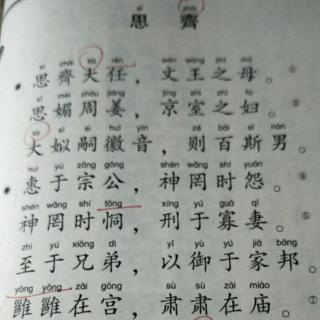 sī zhāi
思 齊
sī zhāi tài rén wén wáng zhī mǔ
思齊大任，文王之母。①
sī mèi zhōu jiāng jīng shì zhī fù
思媚周姜，京室之妇。②
tài sì sì huī yīn zé bǎi sī nán
大姒嗣徽音，则百斯男。③
huì yú zōng gōng shén wǎng shí yuàn
惠于宗公，神罔时怨。④
shén wǎng shí tōng xíng yú guǎ qī
神罔时恫，刑于寡妻。⑤
zhì yú xiōng dì yǐ yù yú jiā bāng
至于兄弟，以御于家邦。
yōng yōng zài gōng sù sù zài miào
雝雝在宫，肃肃在庙。⑦